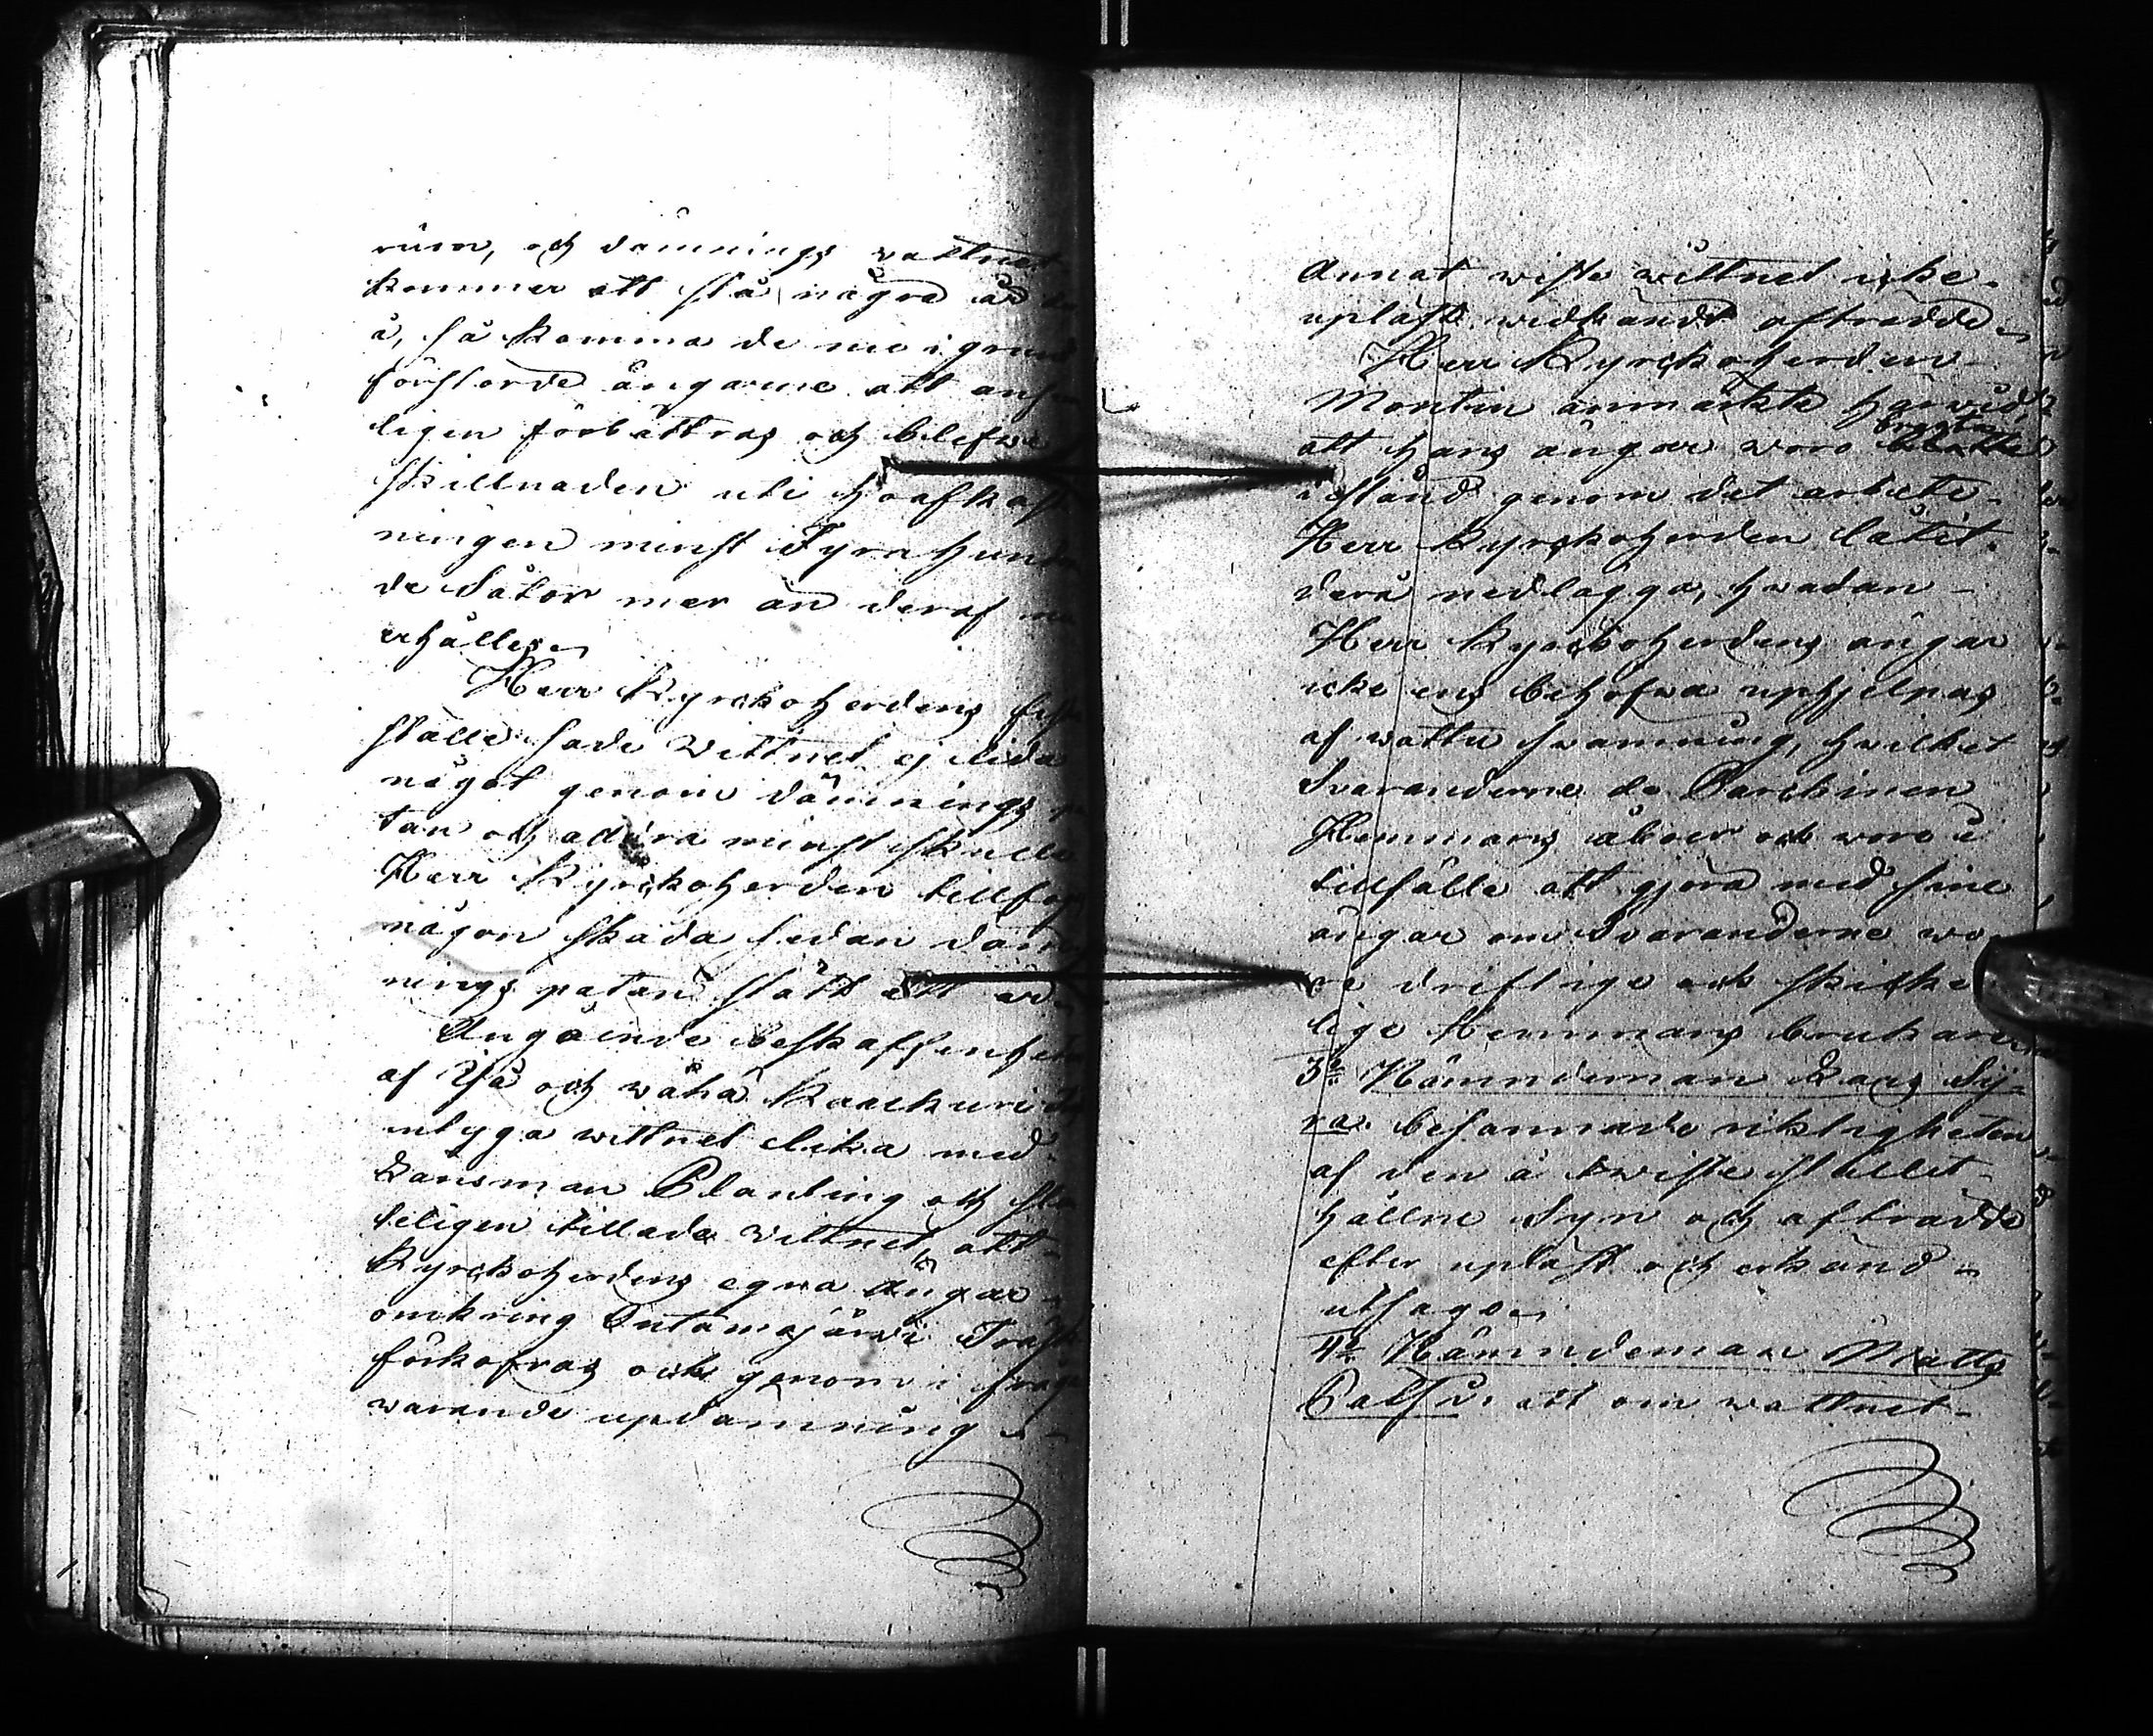 rum, och dämnings wattnet
kommer att stå några år
å, så komma de nu i grund
förstörde ängarne att
ligen förbättras och blefwe
skillnaden uti höafkast
ningen minst Fyra hund
de Såtor mer än deraf
erhålles
Herr Kyrckoherdens
ställe sade Wittnet ej lida
något genom dämnings
tan och aldra minst skulle
Herr Kyrckoherden
någon skada sedan däm
nings patan stått ett år
Angående beskaffenhet
af Iså och wähä
intyga wittnet lika med
Länsman Planting och
teligen tillade Wittnet, att
Kyrckoherdens egna ängar
omkring Lutamajärwi Träsk
förkofras och genom i fråga
warande updämning
Annat wiste wittnet icke
upläst widkändt afträdde
Herr Kyrckoherden
Montin anmärkte härwid,
att hans ängar woro bragta
i stånd genom det arbete
Herr Kyrckoherden låtit
derå nedlägga, hwadan
Herr Kyrckoherdens ängar
icke ens behöfwa uphjelpas
af wattu swämning, hwilket
Svaranderne de Parckinen
Hemmans åboer ock woro i
tillfälle att gjöra med sine
ängar om Svaranderne wo
re driftige och skicke
lige Hemmans brukare
3e Nämndeman Lars Sy-
ra. besannade riktigheten
af den å twiste stället
hållne Syn och afträdde
efter upläst och erkänd
utsago
4e Nämndeman Matts
Palsu. att om wattnet